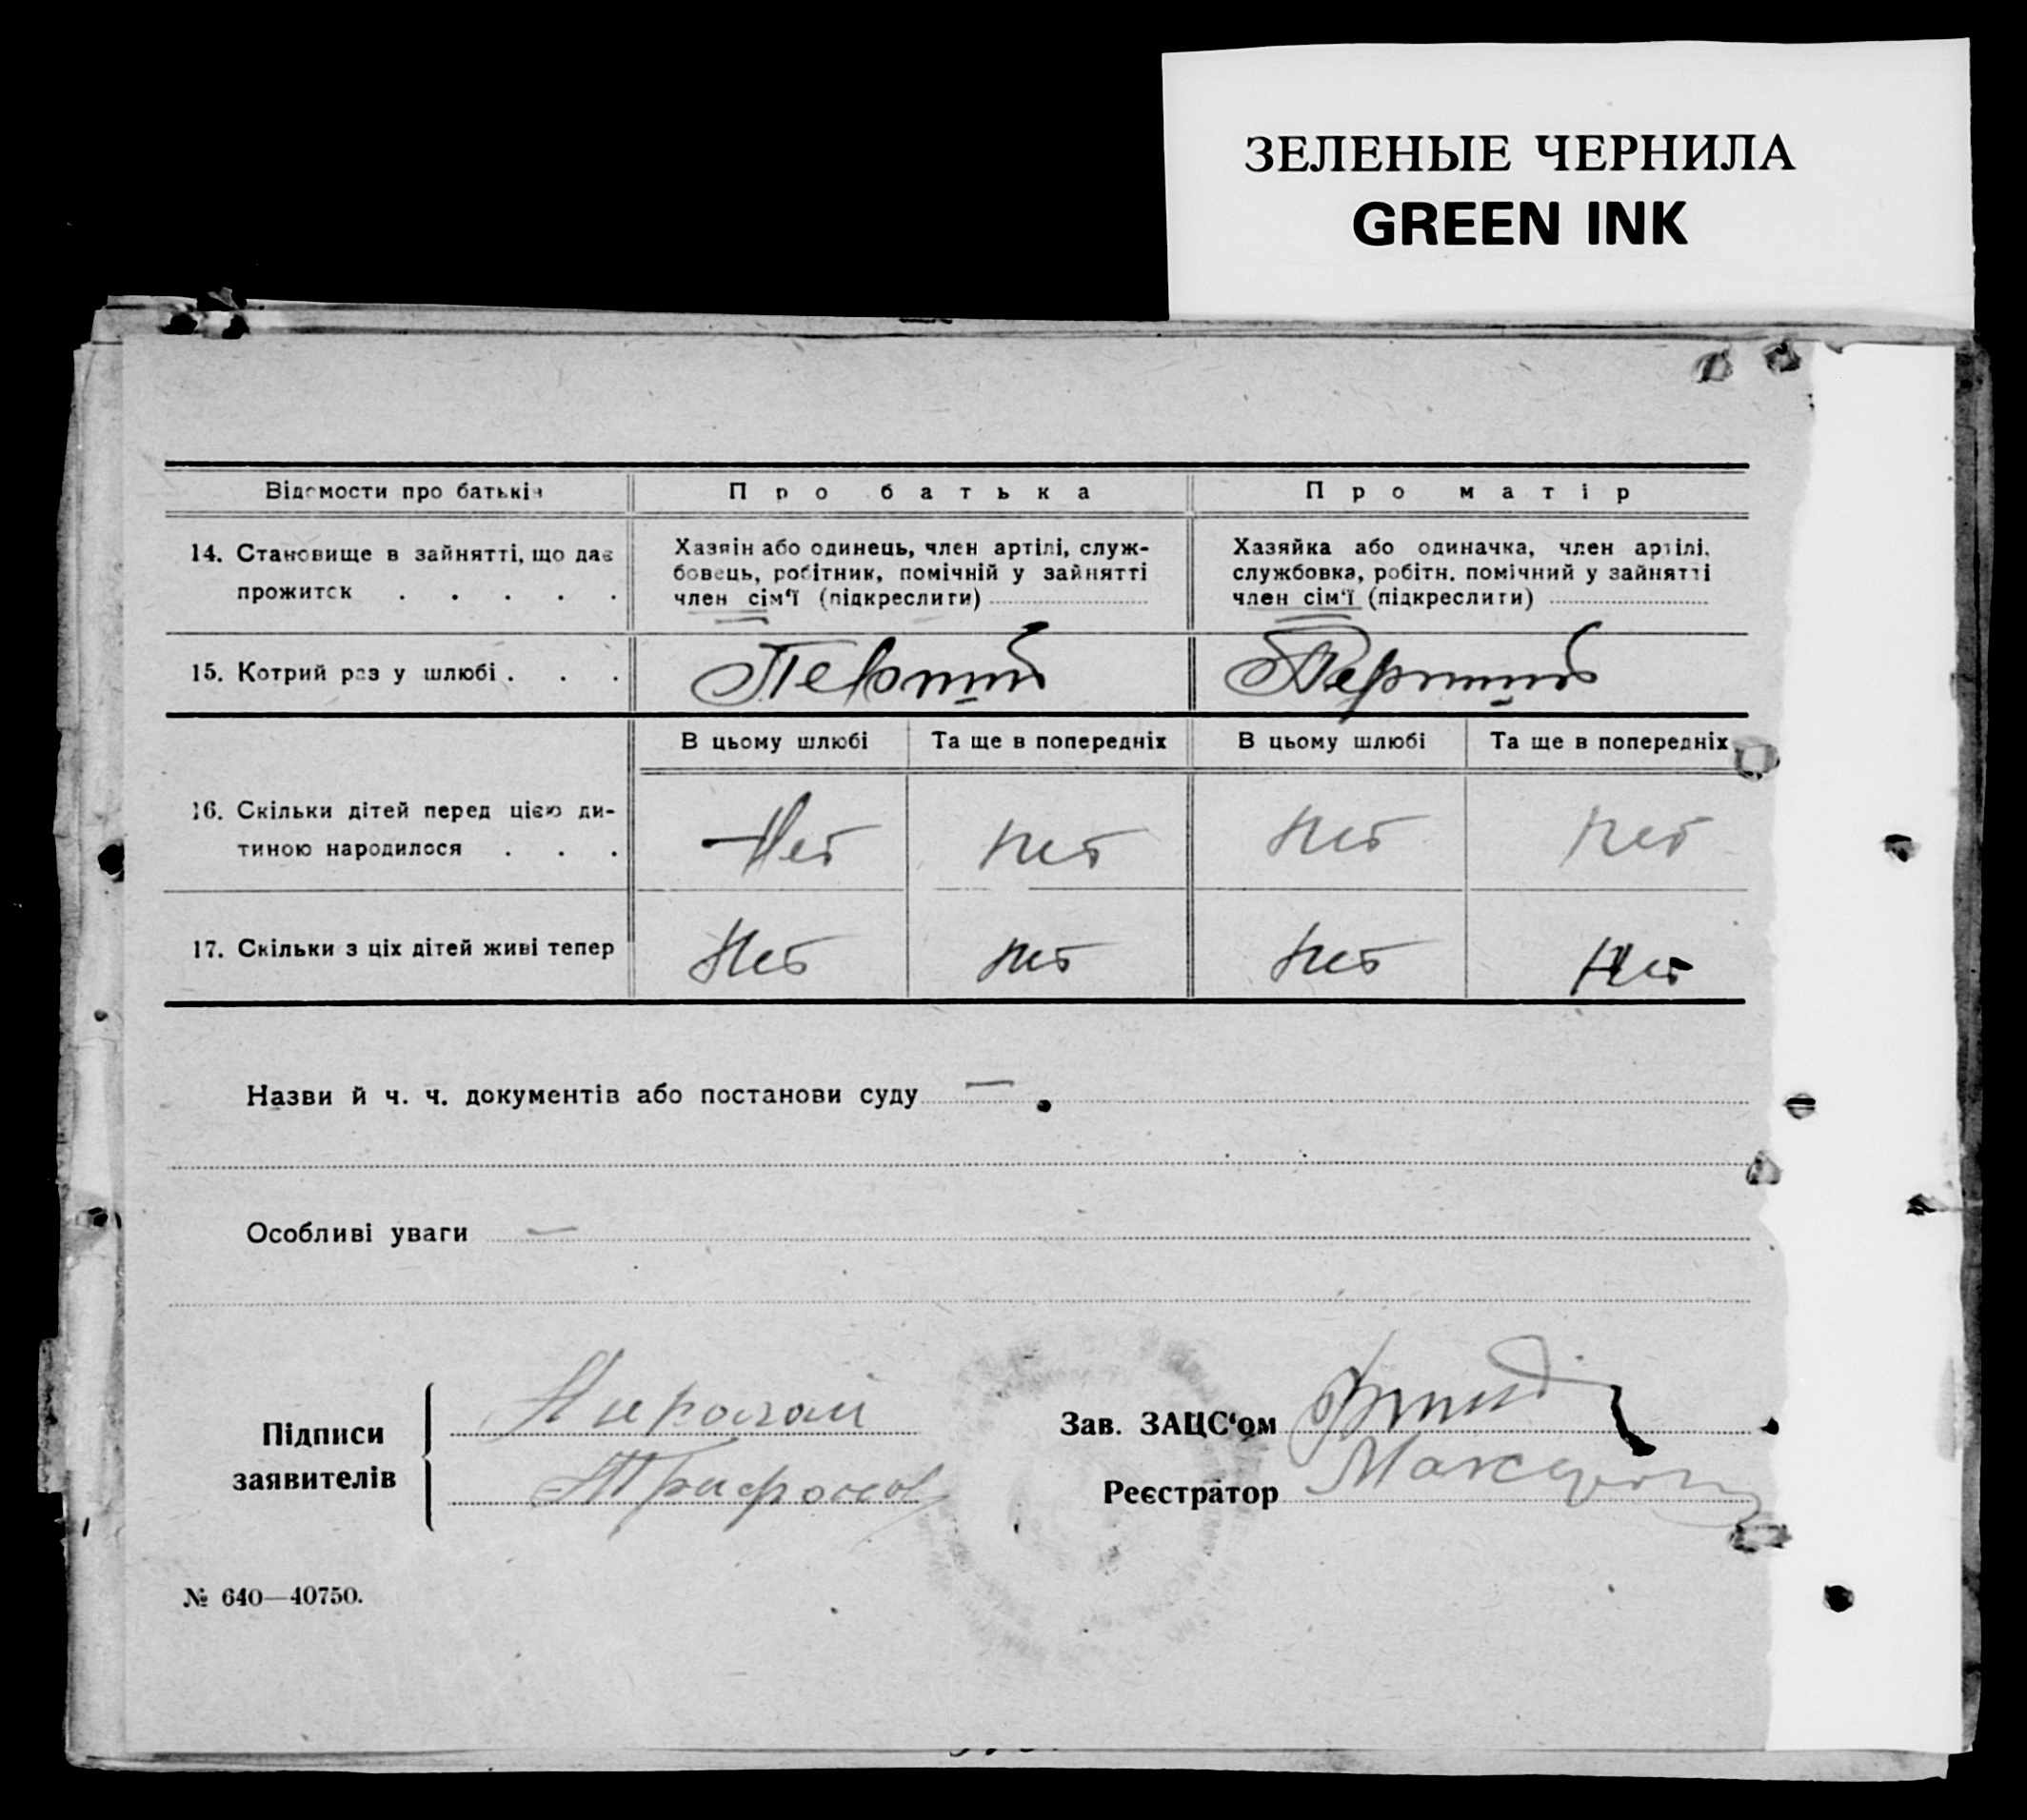 ЗЕЛЕНЫЕ ЧЕРНИЛА
GREEN INK
Відомости про батьків
Про батька
Про матір
14. Становище в зайнятті, що дає
прожиток . . . . .
Хазяін або одинець, член артілі, служ-
бовець, робітник, помічній у зайнятті
член сім‘ї (підкреслити)
Хазяйка або одиначка, член артілі,
службовка, робітн. помічний у зайнятті
член сім‘ї (підкреслити)
15. Котрий раз у шлюбі . . .
Первий
Первий
В цьому шлюбі
Та ще в попередніх
В цьому шлюбі
Та ще в попередніх
16. Скільки дітей перед цією ди-
тиною народилося . . .
Нет
Нет
Нет
Нет
17. Скільки з ціх дітей живі тепер
Нет
Нет
Нет
Нет
Назви й ч. ч. документів або постанови суду —
Особливі уваги —
Підписи
заявителів
Зав. ЗАЦС‘ом
Реєстратор
№ 640—40750.